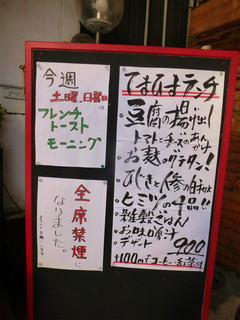 今週
土曜、日曜日に
フレンチ
トースト
モーニング
全席禁煙に
なりました。
てまひまランチ
・豆腐の揚げ出し
トマトとチーズのあんかけ
・お麩のグラタン!
・ひじきと人参の白和え
・ヒミツの一品!!
・雑穀ごはん!
・お味噌汁
・デザート
900
+100円でコーヒー・紅茶付